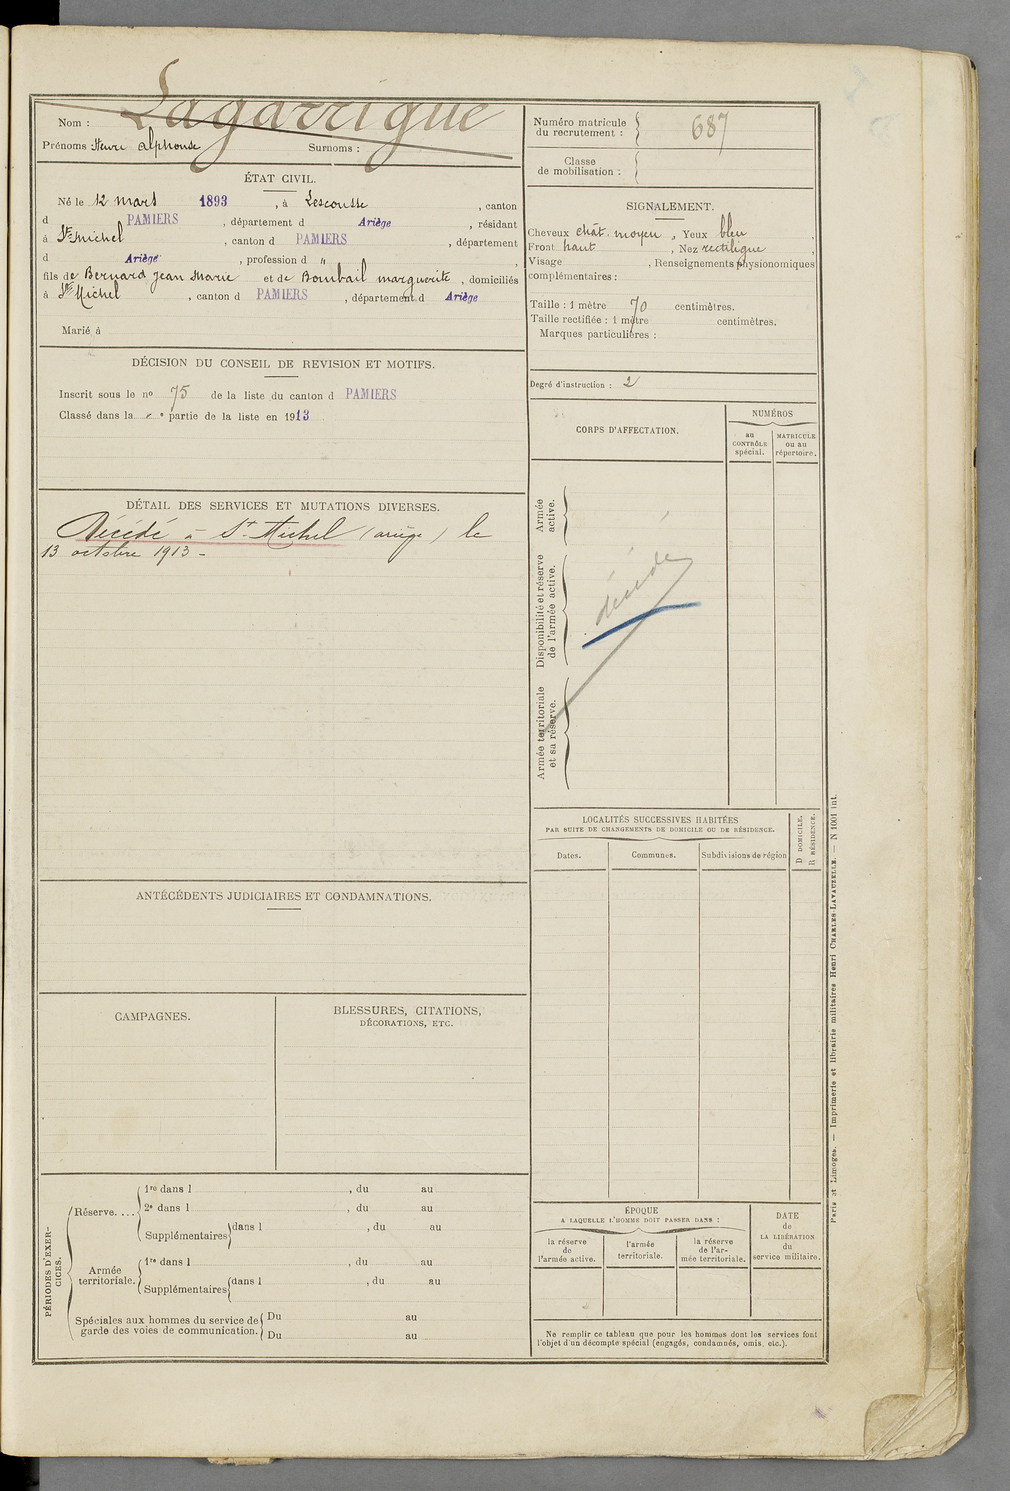 Lagarrigue
Nom :
Prénoms Henri Alphonse Surnoms :
ÉTAT CIVIL.
Né le 12 mars 1893, à Lescousse, canton
d PAMIERS, département d Ariège, résidant
à St Michel, canton d PAMIERS, département
d Ariège, profession d "
fils de Bernard Jean Marie et de Bombail marguerite, domiciliés
à St Michel, canton d PAMIERS, département d Ariège
Marié à
DÉCISION DU CONSEIL DE REVISION ET MOTIFS.
Inscrit sous le no 75 de la liste du canton d PAMIERS
Classé dans la e partie de la liste en 1913
DÉTAIL DES SERVICES ET MUTATIONS DIVERSES.
Décédé à St Michel (ariège) le
13 octobre 1913 -
ANTÉCÉDENTS JUDICIAIRES ET CONDAMNATIONS.
CAMPAGNES.
BLESSURES, CITATIONS,
DÉCORATIONS, ETC.
PÉRIODES D'EXER-
CICES.
Réserve....
1re dans l , du au
2e dans l , du au
Supplémentaires dans l , du au
Armée
territoriale.
1re dans l , du au
Supplémentaires dans l , du au
Spéciales aux hommes du service de
garde des voies de communication.
Du au
Du au
Numéro matricule
du recrutement : 687
Classe
de mobilisation :
SIGNALEMENT.
Cheveux chât. moyen, Yeux bleu,
Front haut, Nez rectiligne,
Visage , Renseignements physionomiques
complémentaires :
Taille : 1 mètre 70 centimètres.
Taille rectifiée : 1 mètre centimètres.
Marques particulières :
Degré d'instruction : 2
CORPS D'AFFECTATION.
NUMÉROS
au
CONTRÔLE
spécial.
MATRICULE
ou au
répertoire.
Armée
active.
Disponibilité et réserve
de l'armée active.
décédé
Armée territoriale
et sa réserve.
LOCALITÉS SUCCESSIVES HABITÉES
PAR SUITE DE CHANGEMENTS DE DOMICILE OU DE RÉSIDENCE.
Dates.
Communes.
Subdivisions de région
D DOMICILE.
R RÉSIDENCE.
ÉPOQUE
A LAQUELLE L'HOMME DOIT PASSER DANS :
la réserve
de
l'armée active.
l'armée
territoriale.
la réserve
de l'ar-
mée territoriale.
DATE
de
LA LIBÉRATION
du
service militaire.
Ne remplir ce tableau que pour les hommes dont les services font
l'objet d'un décompte spécial (engagés, condamnés, omis, etc.).
Paris et Limoges. — Imprimerie et librairie militaires Henri CHARLES-LAVAUZELLE. — N 1001 int.